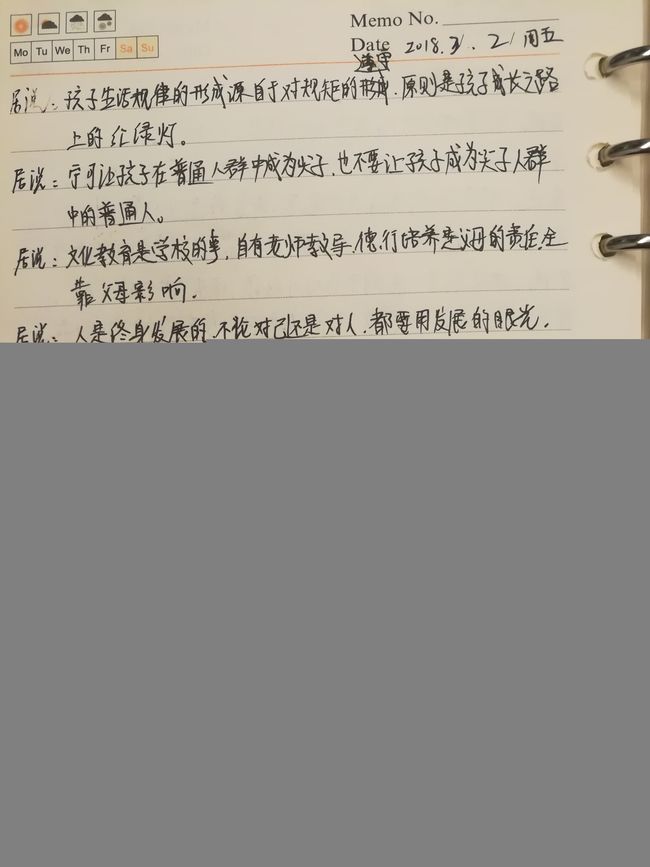 Memo No.
Mo Tu We Th Fr Sa Su
Date 2018.3.2/周五
遵守
居说：孩子生活规律的形成源自于对规矩的形成，原则是孩子成长之路
上的红绿灯。
居说：宁可让孩子在普通人群中成为尖子，也不要让孩子成为尖子人群
中的普通人。
居说：文化教育是学校的事，自有老师教导，德行培养是父母的责任，全
靠父母影响。
居说：人是终身发展的，不论对己还是对人，都要用发展的眼光，